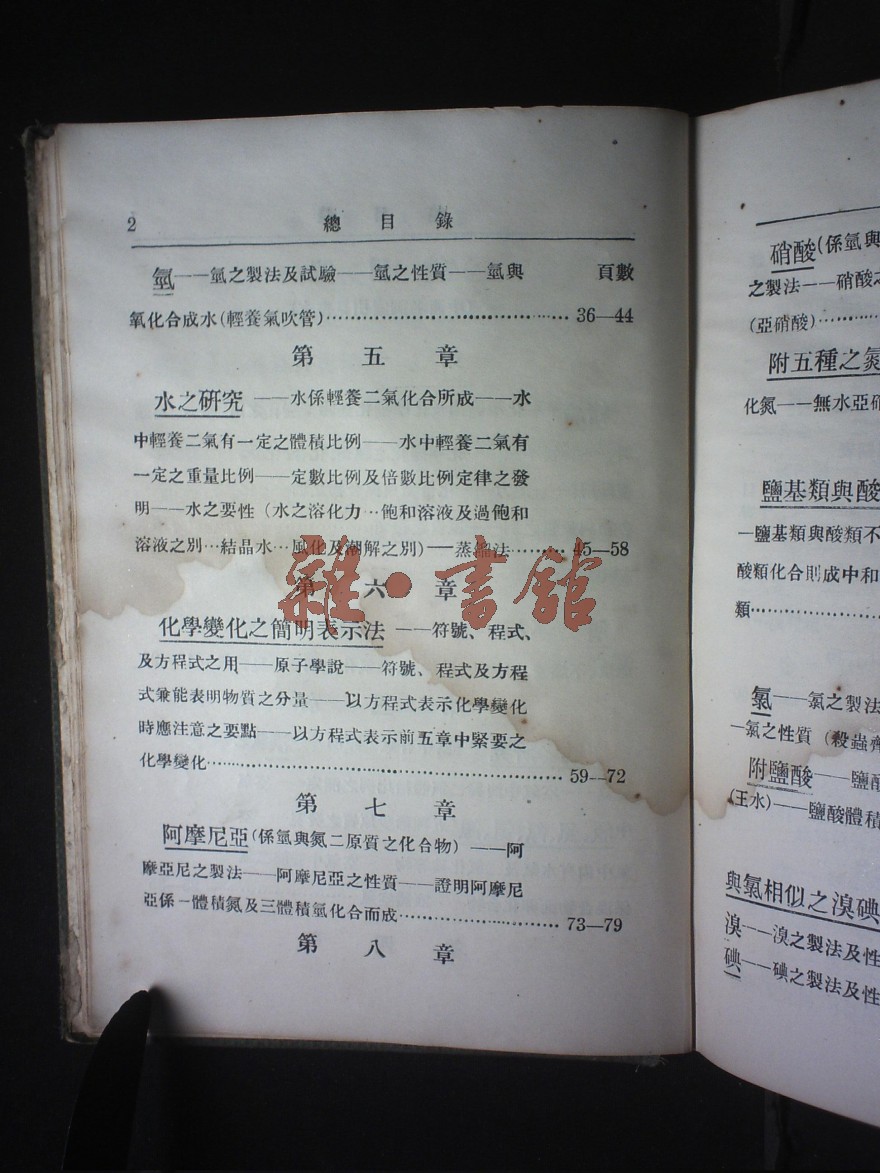 2 總目錄
氫——氫之製法及試驗——氫之性質——氫與 頁數
氧化合成水(輕養氣吹管)…………………………36—44
第五章
水之研究——水係輕養二氣化合所成——水
中輕養二氣有一定之體積比例——水中輕養二氣有
一定之重量比例——定數比例及倍數比例定律之發
明——水之要性(水之溶化力…飽和溶液及過飽和
溶液之別…結晶水…風化及潮解之別)——蒸溜法………45—58
第六章
雜·書館
化學變化之簡明表示法——符號、程式、
及方程式之用——原子學說——符號、程式及方程
式兼能表明物質之分量——以方程式表示化學變化
時應注意之要點——以方程式表示前五章中緊要之
化學變化…………………………………………59—72
第七章
阿摩尼亞(係氫與氮二原質之化合物)——阿
摩亞尼之製法——阿摩尼亞之性質——證明阿摩尼
亞係一體積氮及三體積氫化合而成………………73—79
第八章
硝酸(係氫與
之製法——硝酸之
(亞硝酸)………
附五種之氮
化氮——無水亞硝
鹽基類與酸
—鹽基類與酸類不
酸類化合則成中和
類………
氯——氯之製法
—氯之性質(殺蟲劑
附鹽酸——鹽酸
(王水)——鹽酸體積
與氯相似之溴碘
溴——溴之製法及性
碘——碘之製法及性